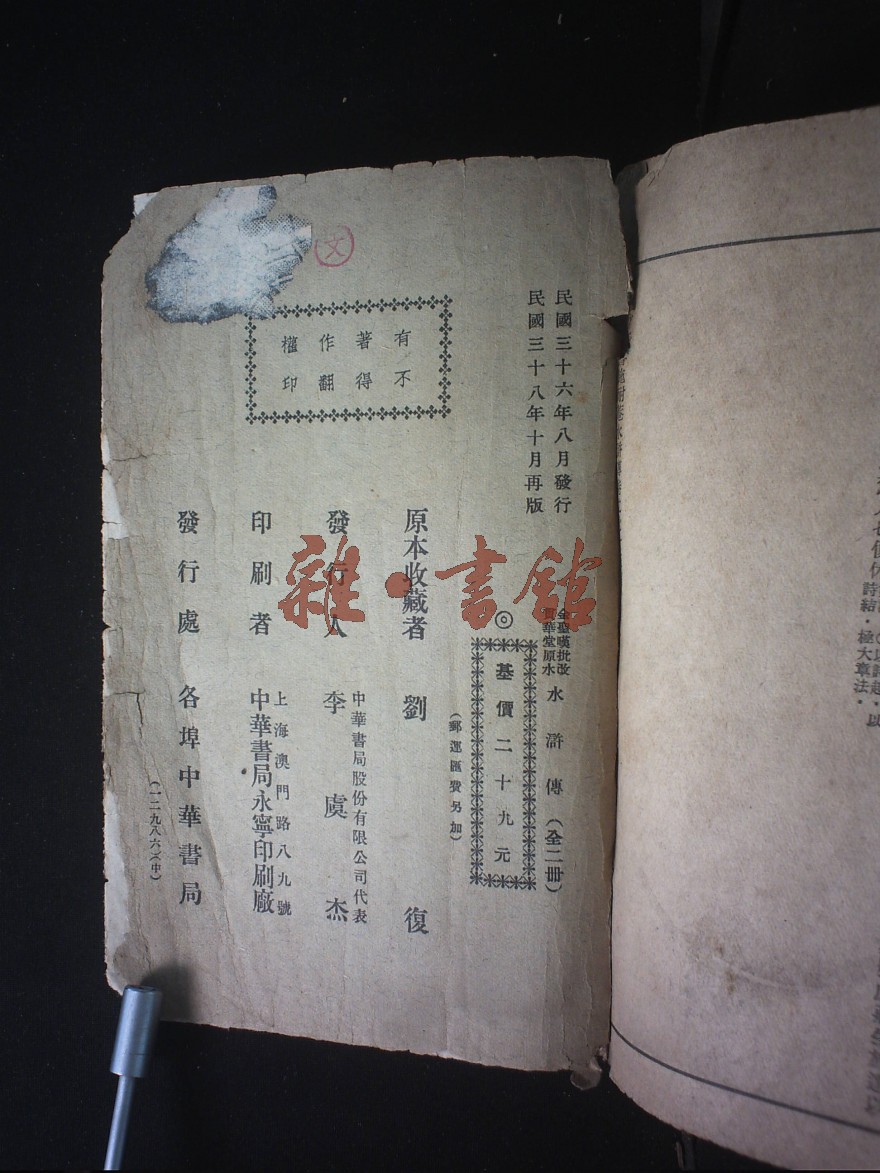 民國三十六年八月發行
民國三十八年十月再版
金聖嘆批改
貫華堂原本
水滸傳(全二冊)
◎基價二十九元
(郵運匯費另加)
有不
著得
作翻
權印
文
原本收藏者 劉復
發行人 李虞杰
中華書局股份有限公司代表
印刷者
上海澳門路八九號
中華書局永寧印刷廠
發行處 各埠中華書局
(一二九八六)(中)
雜·書館
詩結·極大章法·